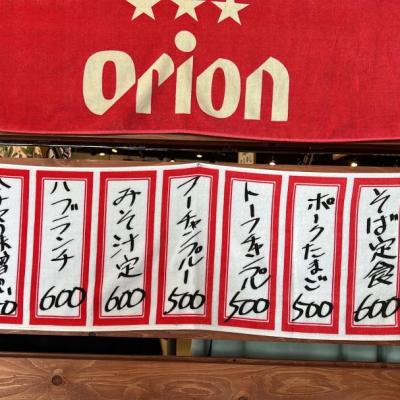 orion
そば定食
600
ポークたまご
500
トーフチャンプル
500
フーチャンプルー
500
みそ汁定
600
ハブランチ
600